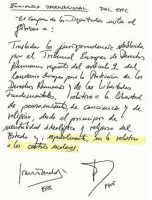 ENMIENDA TRANSACCIONAL DEL ERC
"El Congreso de los Diputados insta al
Gobierno a:
Trasladar la jurisprudencia establecida
por el Tribunal Europeo de Derechos
Humanos respecto del artículo 2 del
Convenio Europeo para la Protección de los
Derechos Humanos y de las Libertades
Fundamentales, relativo a la libertad
de pensamiento, de conciencia y de
religión, desde el principio de
neutralidad ideológica y religiosa del
Estado y, especialmente, en lo relativo
a los centros escolares.
ERC